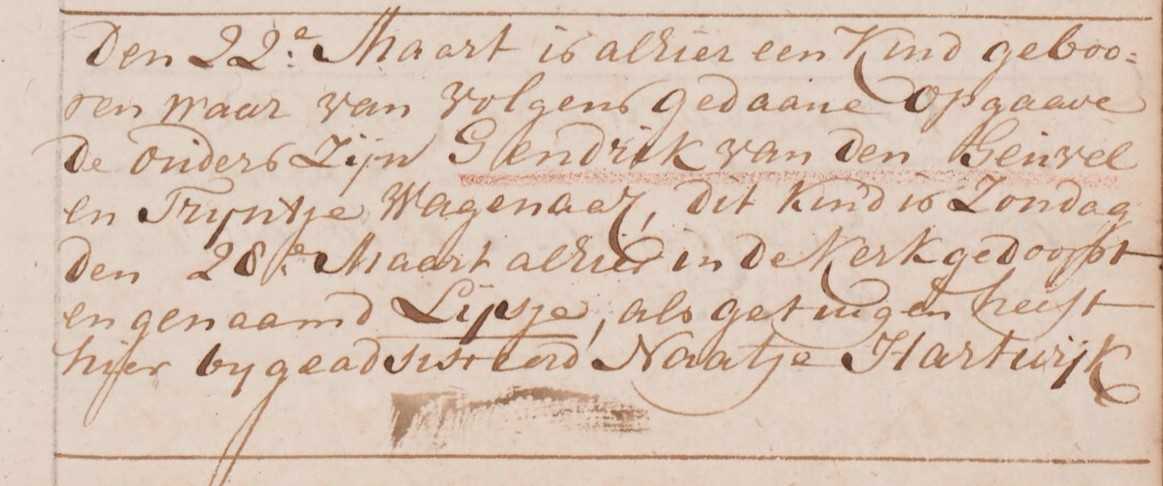 Den 22:e Maart is alhier een Kind geboo=
ren waar van volgens gedaane opgaave
De ouders Zijn Hendrik van den Heuvel
en Tryntje Wagenaar, dit Kind is Zondag
den 28:e Maart alhier in de Kerk gedoopt
en genaamd Lijsje, als getuigen heeft
hier by geadsisteerd Naatje Hartwijk